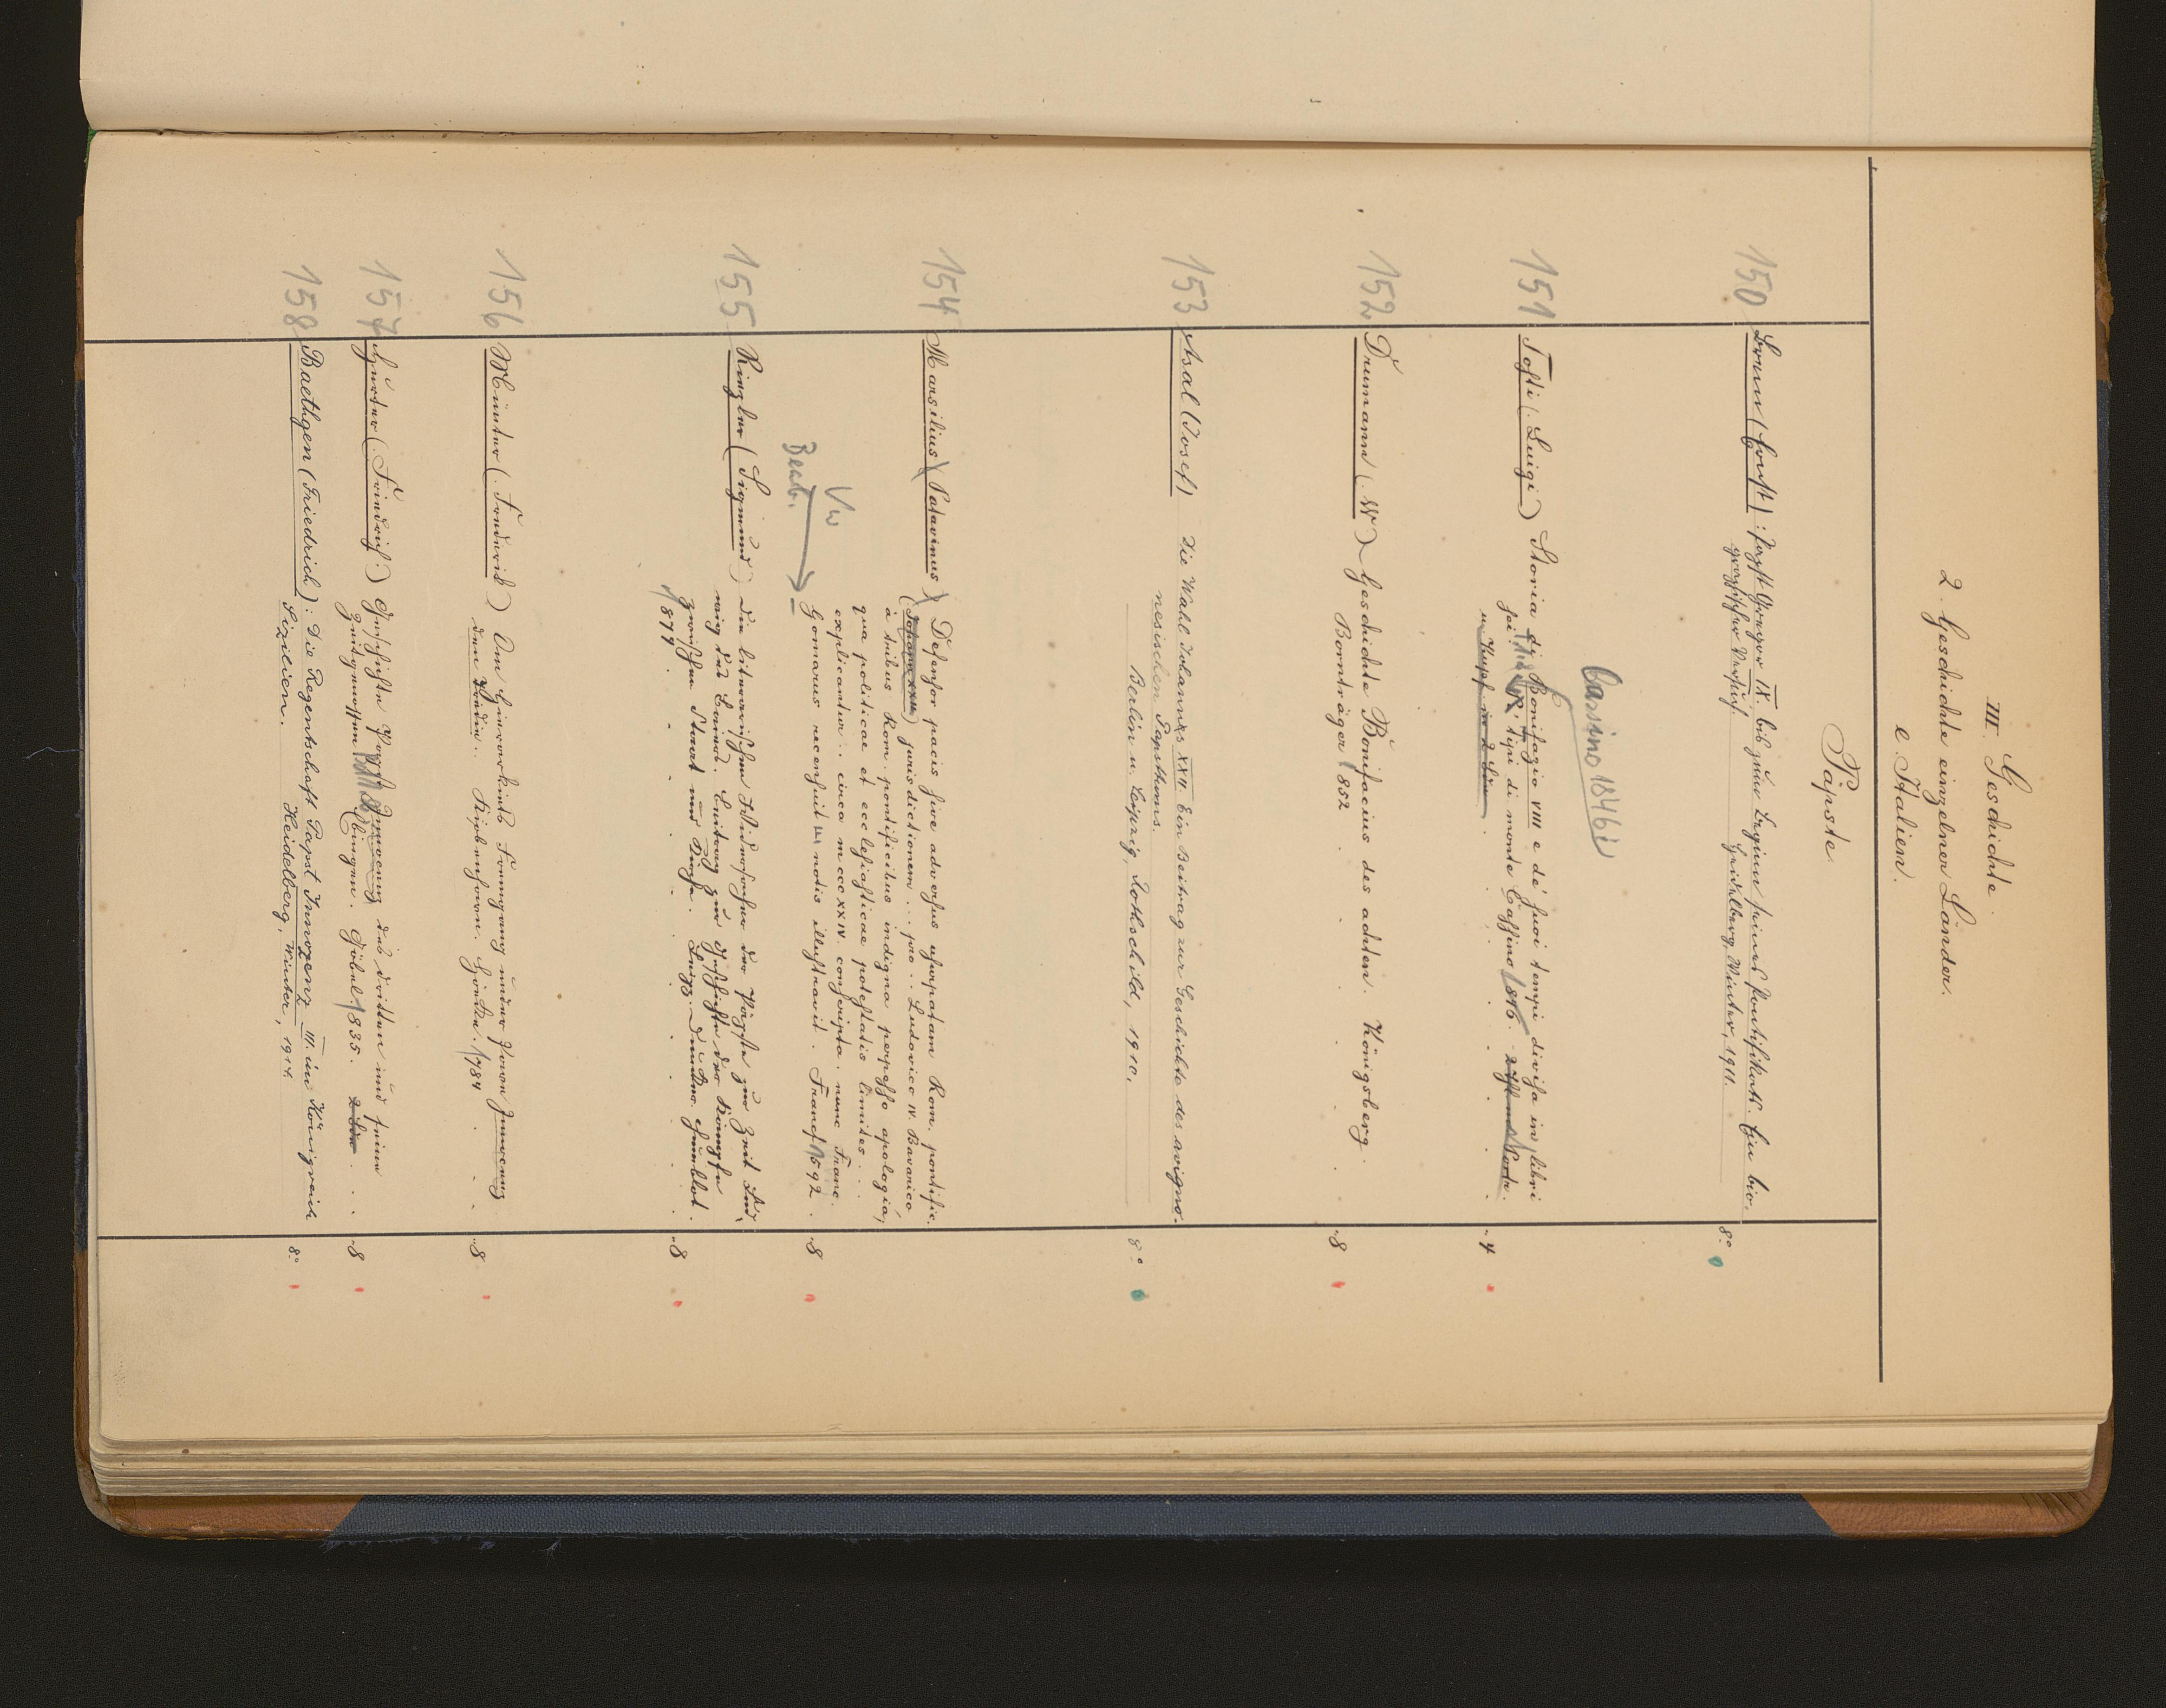 III. Geschichte.
2. Geschichte einzelner Länder.
e. Italien.
Päpste
150 Brem (Ernst): Papst Gregor IX. bis zum Beginn seines Pontifikats. Ein bio-
graphischer Versuch. Heidelberg, Winter, 1911. 8°
Cassino 1846
151 Tosti (Luigi) Storia di Bonifazio VIII e de' suoi tempi divisa in libri
sei. tipi di monte Cassino 1846. 4
u. Kupf. in 2 Bdn
152 Drumann (W) Geschichte Bonifacius des achten. Königsberg.
Bornträger 1852 8
153 Asal (Josef) Die Wahl Johannes XXII. Ein Beitrag zur Geschichte des avigno-
nesischen Papsttums.
Berlin u. Leipzig, Rothschild, 1910. 8°
154 Marsilius Patavinus Defensor pacis sive adversus usurpatam Rom. pontific.
(Johann XXII) jurisdictionem ... pro .. Ludovico IV. Bavarico
à tribus Rom. pontificibus indigna perpesso apologiá,
qua politicae et ecclesiasticae potestatis limites ...
explicantur .. circa mcccxxiv. conscripta. nunc Franc.
Gomarus recensuit notis illustravit. Francf 1592. 8
Vw
Bearb.
155 Riezler (Sigmund) die literarischen Widersacher der Päpste zur Zeit Lud-
wig des Baiers. Beitrag zur Geschichte der Kämpfe
zwischen Staat und Kirche. Leipz. Duncker Humblot.
1874 8
156 Münter (Frederik) Om Hierarkiets Fremgang under Paven Innocenz
den Kiöbenhavn. 1784 8
157 Hurter (Friedrich) Geschichte Papst Innocenz des dritten und seiner
Zeitgenossen Ebingen. Göbel. 1835. 2 Bde 8
158 Baethgen (Friedrich): Die Regentschaft Papst Innozenz III. im Königreich
Sizilien. Heidelberg, Winter, 1914. 8°